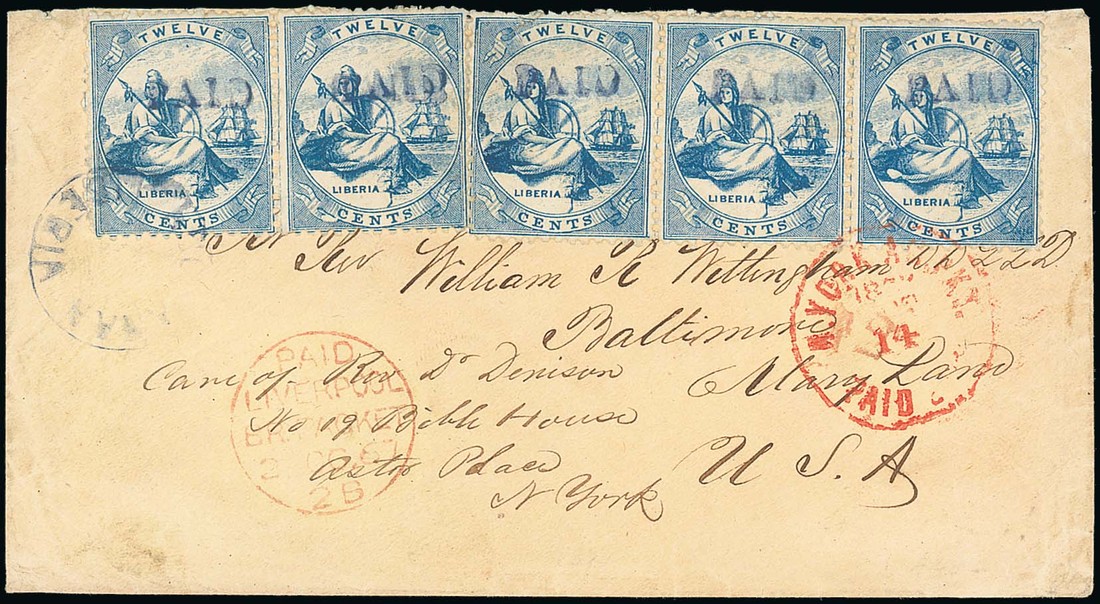 TWELVE TWELVE TWELVE TWELVE TWELVE
PAID PAID PAID PAID PAID
LIBERIA LIBERIA LIBERIA LIBERIA LIBERIA
CENTS CENTS CENTS CENTS CENTS
Rev William R Wittingham DD LLD
Baltimore
Mary Land
U S A
Care of Rev Dr Denison
No 19 Bible House
Astor Place
N York
PAID
LIVERPOOL
BR. PACKET
2B
N. YORK AM. PKT.
14
PAID